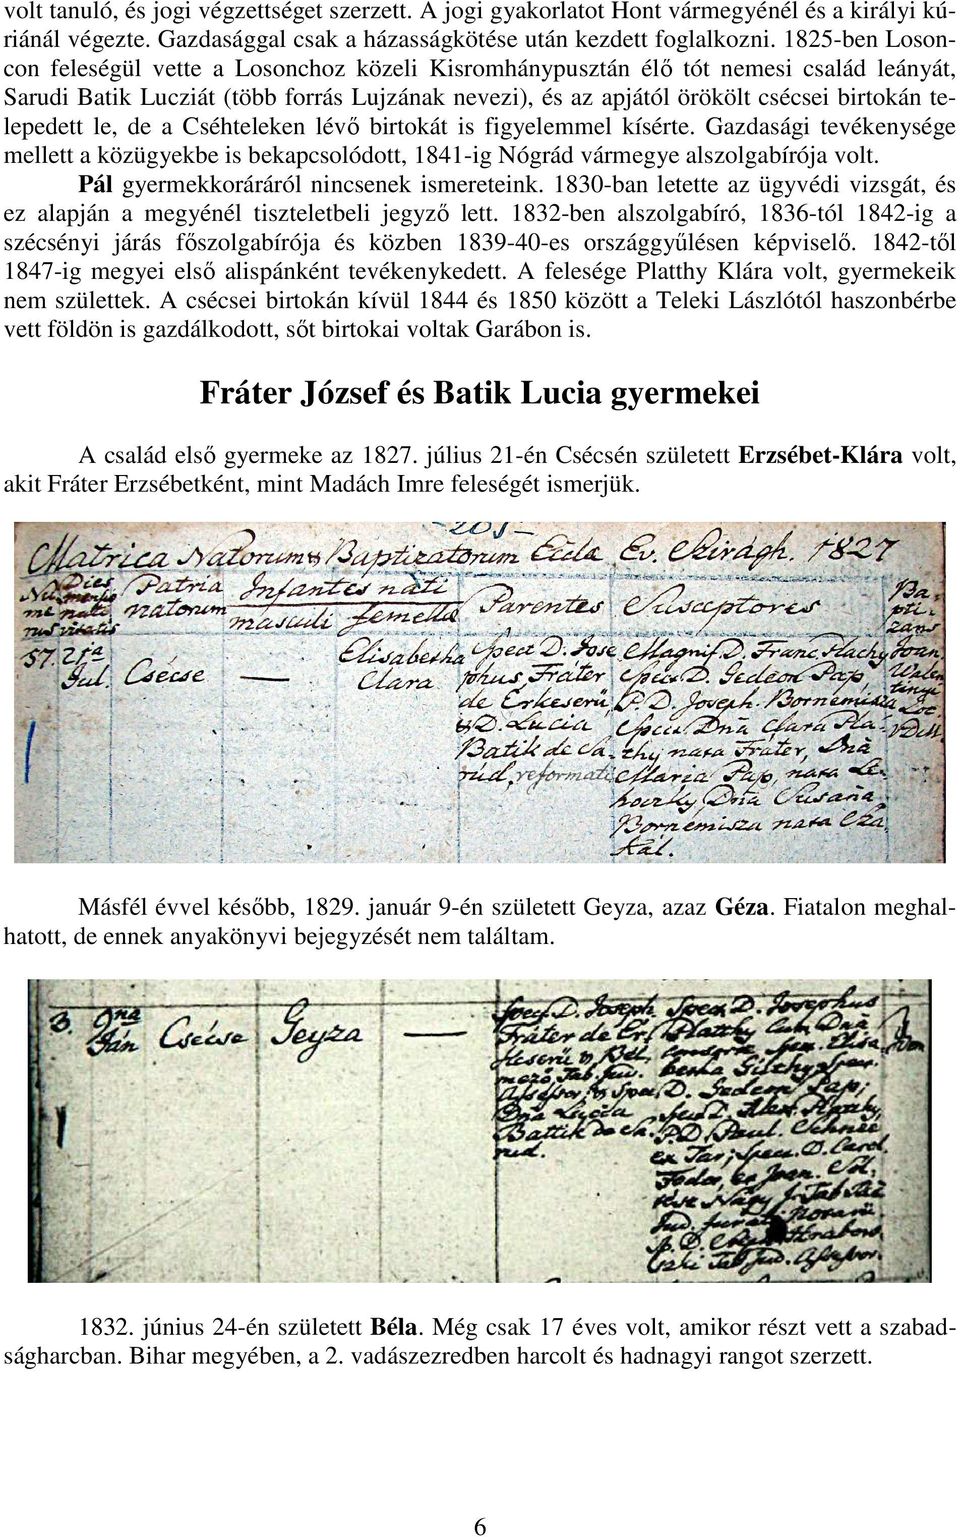 volt tanuló, és jogi végzettséget szerzett. A jogi gyakorlatot Hont vármegyénél és a királyi kú-
riánál végezte. Gazdasággal csak a házasságkötése után kezdett foglalkozni. 1825-ben Loson-
con feleségül vette a Losonchoz közeli Kisromhánypusztán élő tót nemesi család leányát,
Sarudi Batik Lucziát (több forrás Lujzának nevezi), és az apjától örökölt csécsei birtokán te-
lepedett le, de a Cséhteleken lévő birtokát is figyelemmel kísérte. Gazdasági tevékenysége
mellett a közügyekbe is bekapcsolódott, 1841-ig Nógrád vármegye alszolgabírója volt.
Pál gyermekkoráráról nincsenek ismereteink. 1830-ban letette az ügyvédi vizsgát, és
ez alapján a megyénél tiszteletbeli jegyző lett. 1832-ben alszolgabíró, 1836-tól 1842-ig a
szécsényi járás főszolgabírója és közben 1839-40-es országgyűlésen képviselő. 1842-től
1847-ig megyei első alispánként tevékenykedett. A felesége Platthy Klára volt, gyermekeik
nem születtek. A csécsei birtokán kívül 1844 és 1850 között a Teleki Lászlótól haszonbérbe
vett földön is gazdálkodott, sőt birtokai voltak Garábon is.
Fráter József és Batik Lucia gyermekei
A család első gyermeke az 1827. július 21-én Csécsén született Erzsébet-Klára volt,
akit Fráter Erzsébetként, mint Madách Imre feleségét ismerjük.
-205-
Matrica Natorum & Baptizatorum Eccla Ev. Szirágh. 1827
Nu me rus Dies mensis nati vitatis Patria natorum Infantes nati masculi femellæ Parentes Susceptores Ba- pti- zans
57. 21a Jul. Csécse — Elisabetha Clara
Spect D. Jose
phus, Fráter
de Erkeserű,
& D. Lucia
Batik de Sa
rúd, reformati
Magnif. D. Franc. Plachy
Spec. D. Gedeon Pap,
P. D. Joseph. Bornemisza
Spec Dnā Clara Pla-
thy nata Fráter, Dnā
Maria Pap, nata Le-
hoczky Dnā Susaña
Bornemisza nata Sza
kál.
Joan.
Walen
tinyi
Loc
VDiM.
Másfél évvel később, 1829. január 9-én született Geyza, azaz Géza. Fiatalon meghal-
hatott, de ennek anyakönyvi bejegyzését nem találtam.
3. 9na Ján Csécse Geyza —
Spec. D. Joseph
Fráter de Er
keserű & Bél
mező, Tab. Jud.
Assessor; & Spec D.
Dnā Lucia
Battik de Sa
rud.
Spec. D. Josephus
Platthy cum Dnā
consorte Spec. Elisa
betha Spec.
D. Gedeon Pap;
Spec D. Alex. Platthy,
P. D. Paul. Schnée
ex Tar; Spec. D. Carol
Fodor, ex Joan.
Nagy Tab.
Jud.
P. D. Hrabov
szki Tab Jud. Assessor.
1832. június 24-én született Béla. Még csak 17 éves volt, amikor részt vett a szabad-
ságharcban. Bihar megyében, a 2. vadászezredben harcolt és hadnagyi rangot szerzett.
6